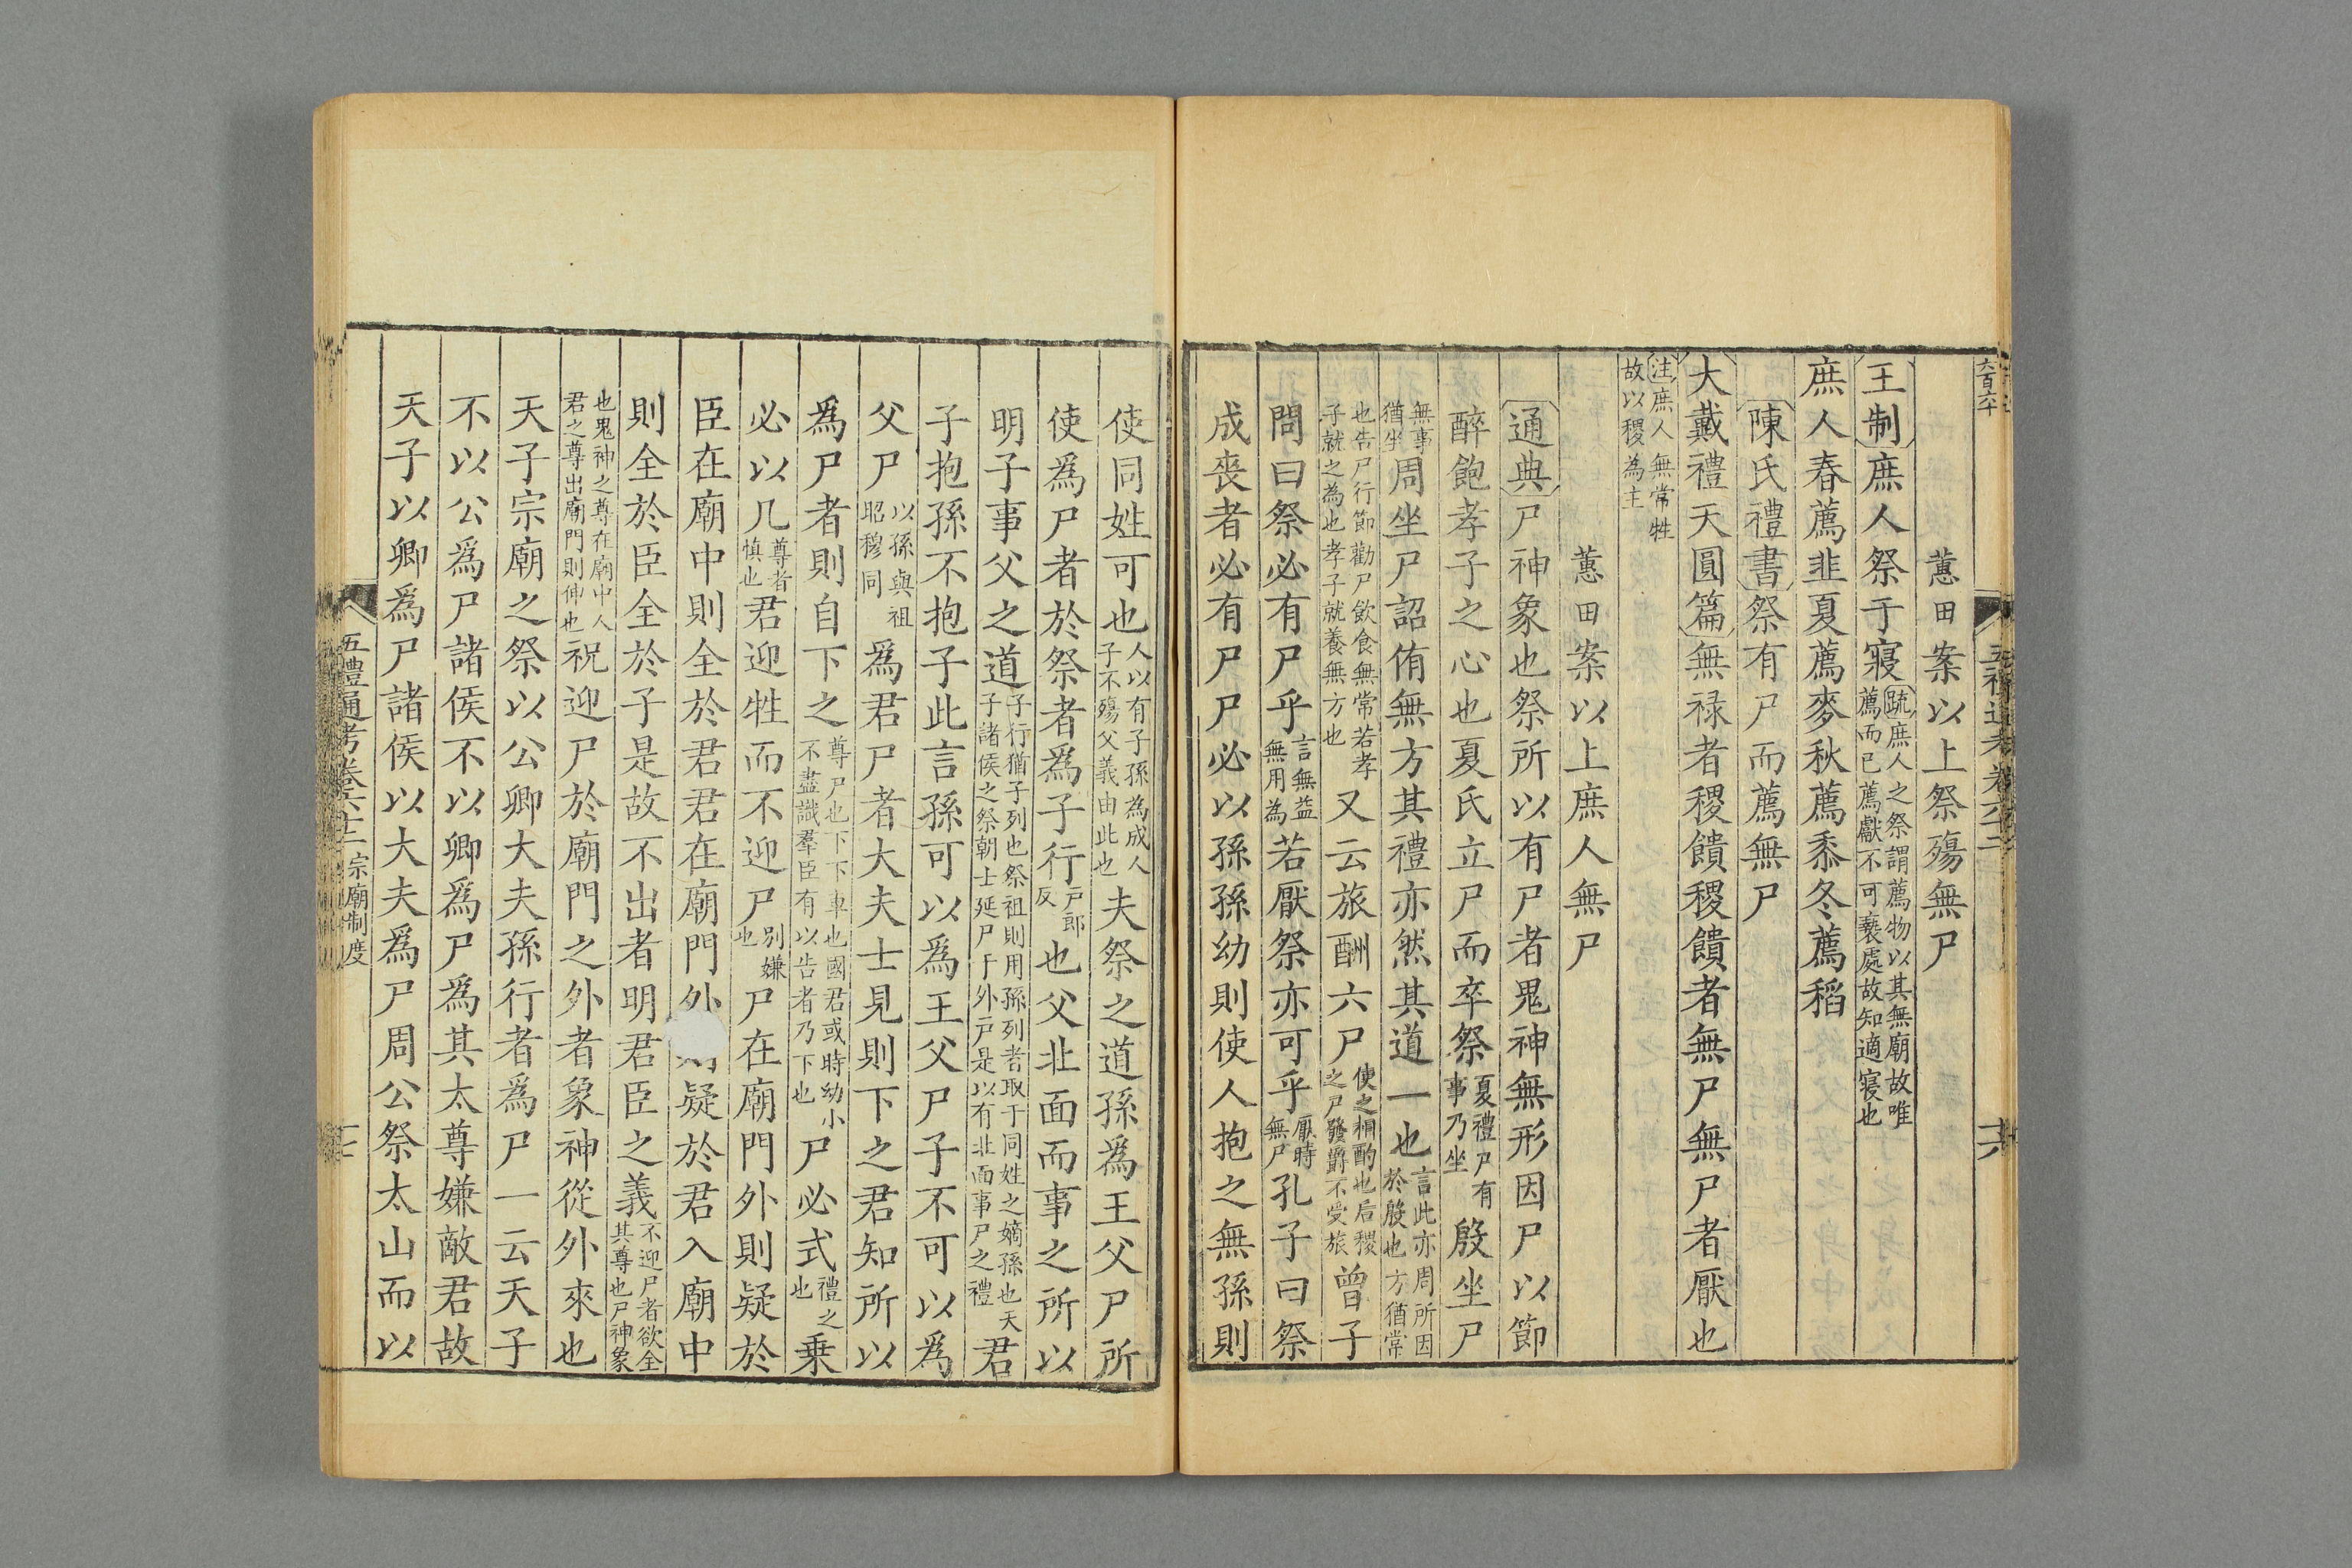 六百六
五禮通考卷六十二
蕙田案以上祭殤無尸
王制庶人祭于寢疏庶人之祭謂薦物以其無廟故唯薦而已薦獻不可褻處故知適寢也
庶人春薦韭夏薦麥秋薦黍冬薦稻
陳氏禮書祭有尸而薦無尸
大戴禮天圓篇無祿者稷饋稷饋者無尸無尸者厭也
注庶人無常牲故以稷為主
蕙田案以上庶人無尸
通典尸神象也祭所以有尸者鬼神無形因尸以節
醉飽孝子之心也夏氏立尸而卒祭夏禮尸有事乃坐殷坐尸
無事猶坐周坐尸詔侑無方其禮亦然其道一也言此亦周所因於殷也方猶常
也告尸行節勸尸飲食無常若孝子就之為也孝子就養無方也又云旅酬六尸使之相酌也后稷之尸發爵不受旅曾子
問曰祭必有尸乎言無益無用為若厭祭亦可乎厭時無尸孔子曰祭
成喪者必有尸尸必以孫孫幼則使人抱之無孫則
使同姓可也人以有子孫為成人子不殤父義由此也夫祭之道孫爲王父尸所
使爲尸者於祭者爲子行戶郎反也父北面而事之所以
明子事父之道子行猶子列也祭祖則用孫列者取于同姓之嫡孫也天子諸侯之祭朝士延尸于外戶是以有北面事尸之禮君
子抱孫不抱子此言孫可以爲王父尸子不可以爲
父尸以孫與祖昭穆同爲君尸者大夫士見則下之君知所以
爲尸者則自下之尊尸也下下車也國君或時幼小不盡識羣臣有以告者乃下也尸必式禮之也乗
必以几尊者慎也君迎牲而不迎尸別嫌也尸在廟門外則疑於
臣在廟中則全於君君在廟門外疑於君入廟中
則全於臣全於子是故不出者明君臣之義不迎尸者欲全其尊也尸神象
也鬼神之尊在廟中人君之尊出廟門則伸也祝迎尸於廟門之外者象神從外來也
天子宗廟之祭以公卿大夫孫行者爲尸一云天子
不以公爲尸諸侯不以卿爲尸爲其太尊嫌敵君故
天子以卿爲尸諸侯以大夫爲尸周公祭太山而以
五禮通考卷六十二 宗廟制度